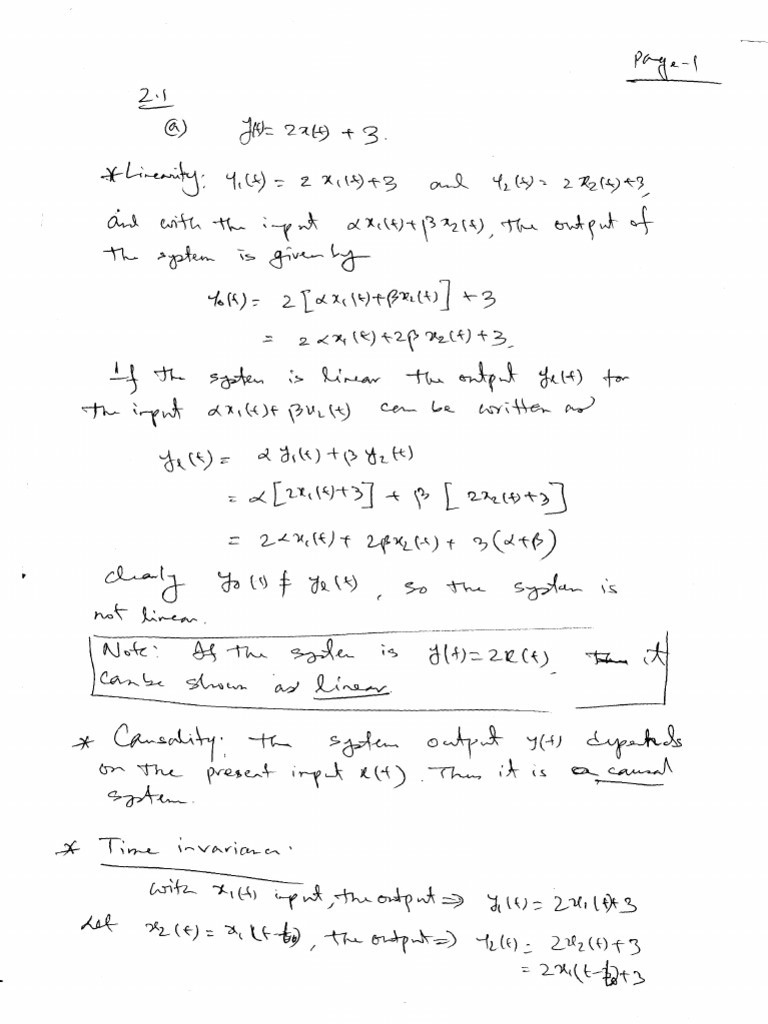 Page-1
2.1
(a) y(t)= 2x(t) + 3.
* Linearity: y₁(t) = 2 x₁(t)+3 and y₂(t) = 2 x₂(t)+3,
and with the input αx₁(t)+βx₂(t), the output of
the system is given by
y₀(t) = 2[αx₁(t)+βx₂(t)] + 3
= 2αx₁(t)+2βx₂(t)+3.
If the system is linear the output yₗ(t) for
the input αx₁(t)+βx₂(t) can be written as
yₗ(t) = αy₁(t)+βy₂(t)
= α[2x₁(t)+3] + β[2x₂(t)+3]
= 2αx₁(t) + 2βx₂(t) + 3(α+β)
clearly y₀(t) ≠ yₗ(t), so the system is
not linear.
Note: If the system is y(t)=2x(t), it
can be shown as linear
* Causality: the system output y(t) depends
on the present input x(t). Thus it is a causal
system.
* Time invariance.
with x₁(t) input, the output ⇒ y₁(t) = 2x₁(t)+3
Let x₂(t) = x₁(t-t₀), the output ⇒ y₂(t) = 2x₂(t)+3
= 2x₁(t-t₀)+3